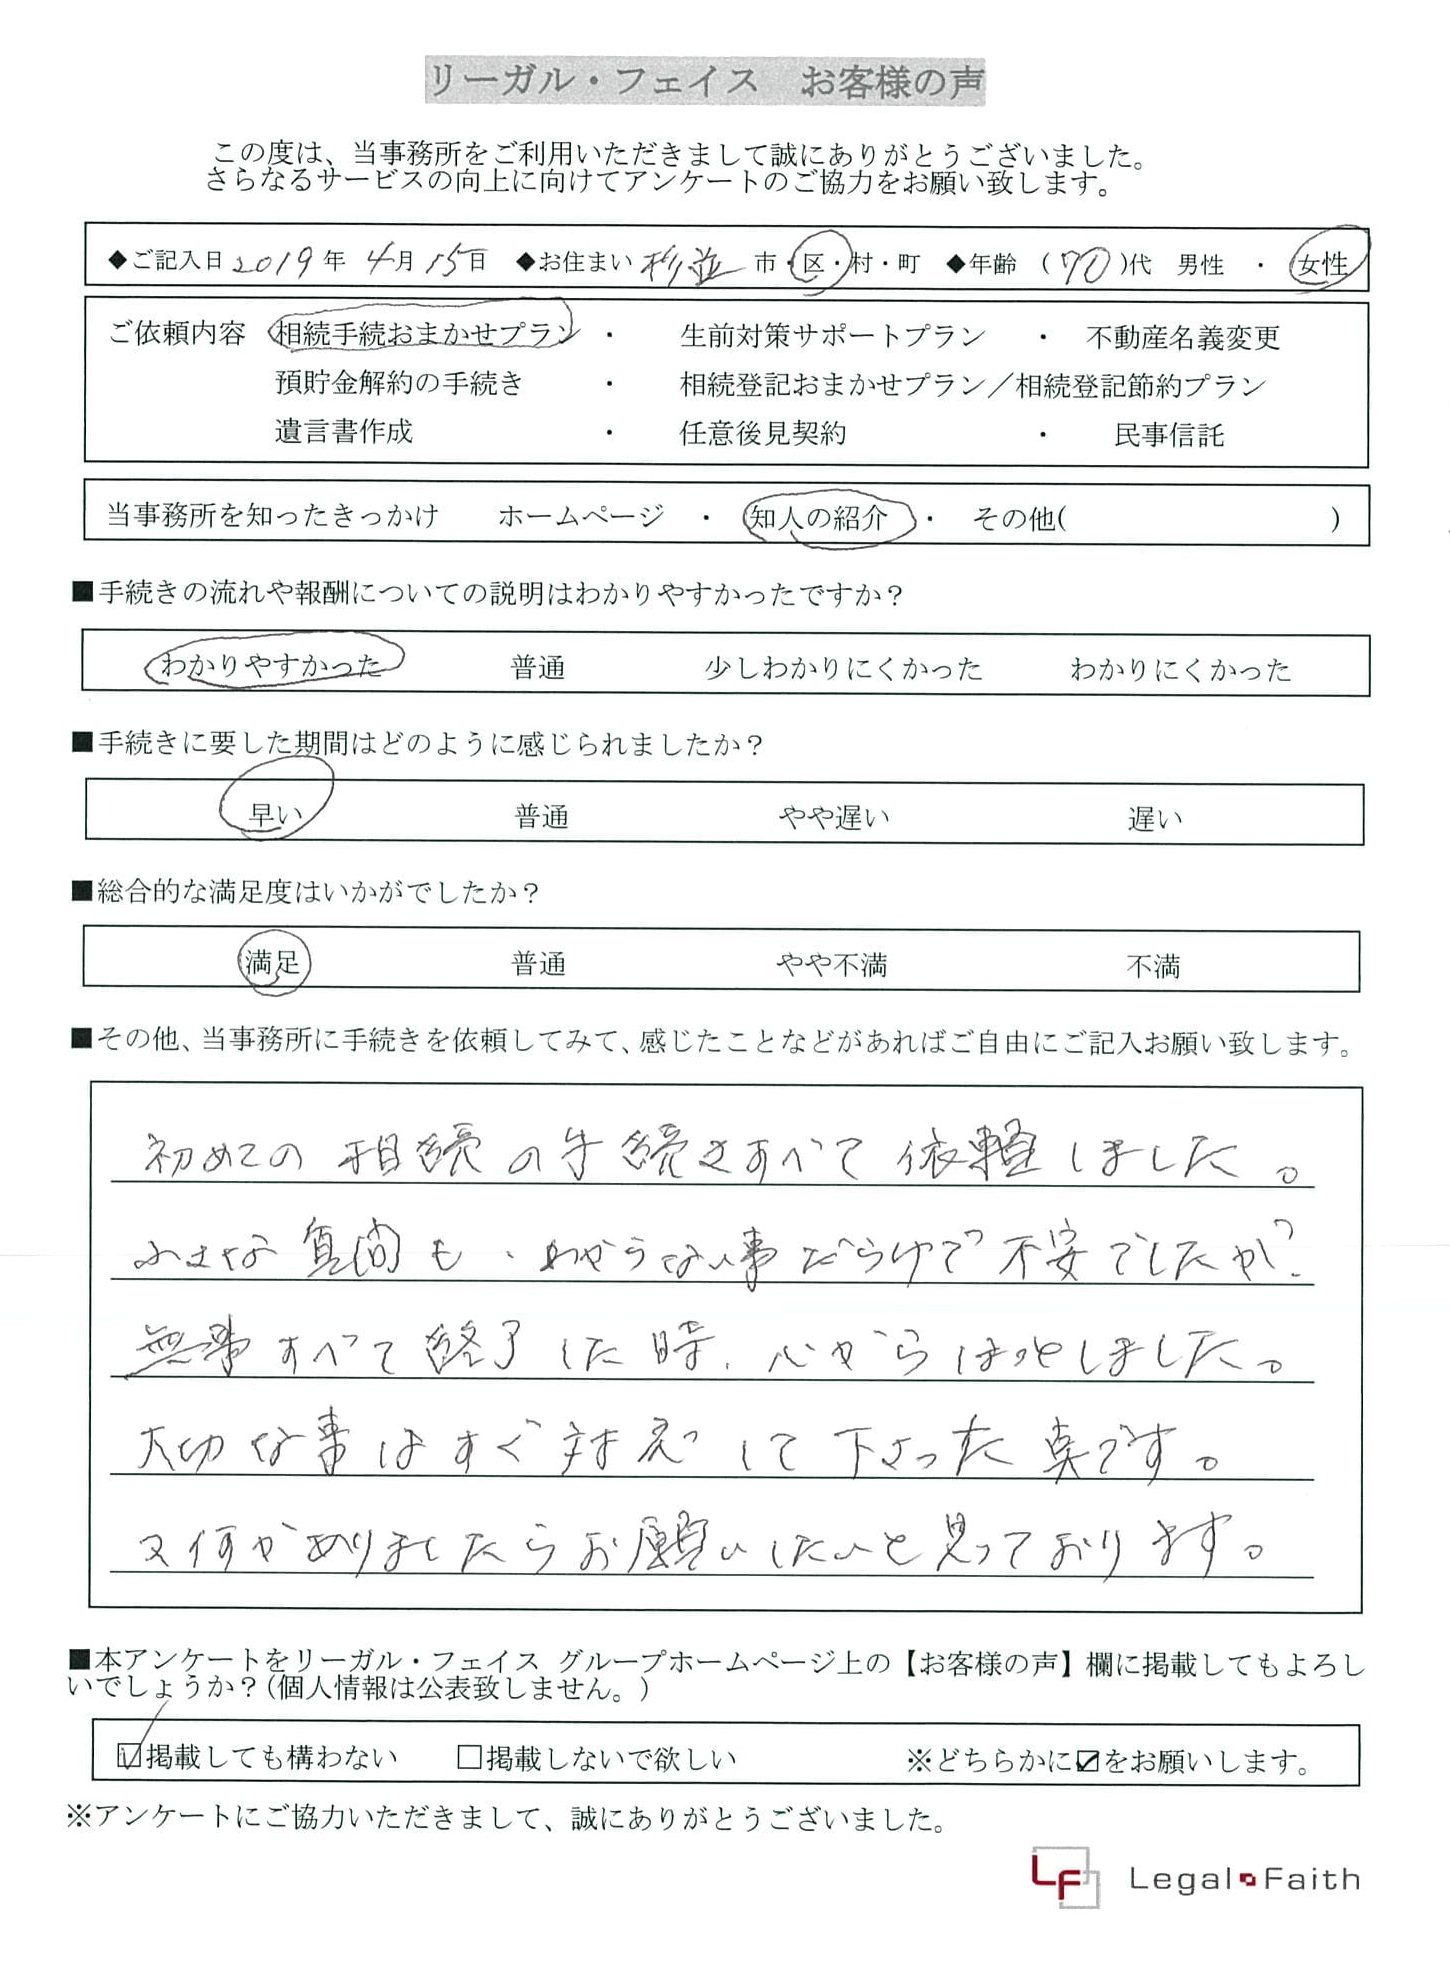 リーガル・フェイス　お客様の声
この度は、当事務所をご利用いただきまして誠にありがとうございました。
さらなるサービスの向上に向けてアンケートのご協力をお願い致します。
◆ご記入日 2019 年 4月 15日 ◆お住まい 杉並 市・区・村・町 ◆年齢 (70)代 男性 ・ 女性
ご依頼内容 相続手続おまかせプラン ・ 生前対策サポートプラン ・ 不動産名義変更
預貯金解約の手続き ・ 相続登記おまかせプラン／相続登記節約プラン
遺言書作成 ・ 任意後見契約 ・ 民事信託
当事務所を知ったきっかけ ホームページ ・ 知人の紹介 ・ その他( )
■手続きの流れや報酬についての説明はわかりやすかったですか？
わかりやすかった 普通 少しわかりにくかった わかりにくかった
■手続きに要した期間はどのように感じられましたか？
早い 普通 やや遅い 遅い
■総合的な満足度はいかがでしたか？
満足 普通 やや不満 不満
■その他、当事務所に手続きを依頼してみて、感じたことなどがあればご自由にご記入お願い致します。
初めての相続の手続きすべて依頼しました。
小さな質問も、わからない事だらけで不安でしたが、
無事すべて終了した時、心からほっとしました。
大切な事はすぐ対応して下さった点です。
又何かありましたらお願いしたいと思っております。
■本アンケートをリーガル・フェイス グループホームページ上の【お客様の声】欄に掲載してもよろし
いでしょうか？(個人情報は公表致しません。)
☑掲載しても構わない □掲載しないで欲しい ※どちらかに☑をお願いします。
※アンケートにご協力いただきまして、誠にありがとうございました。
LF Legal Faith